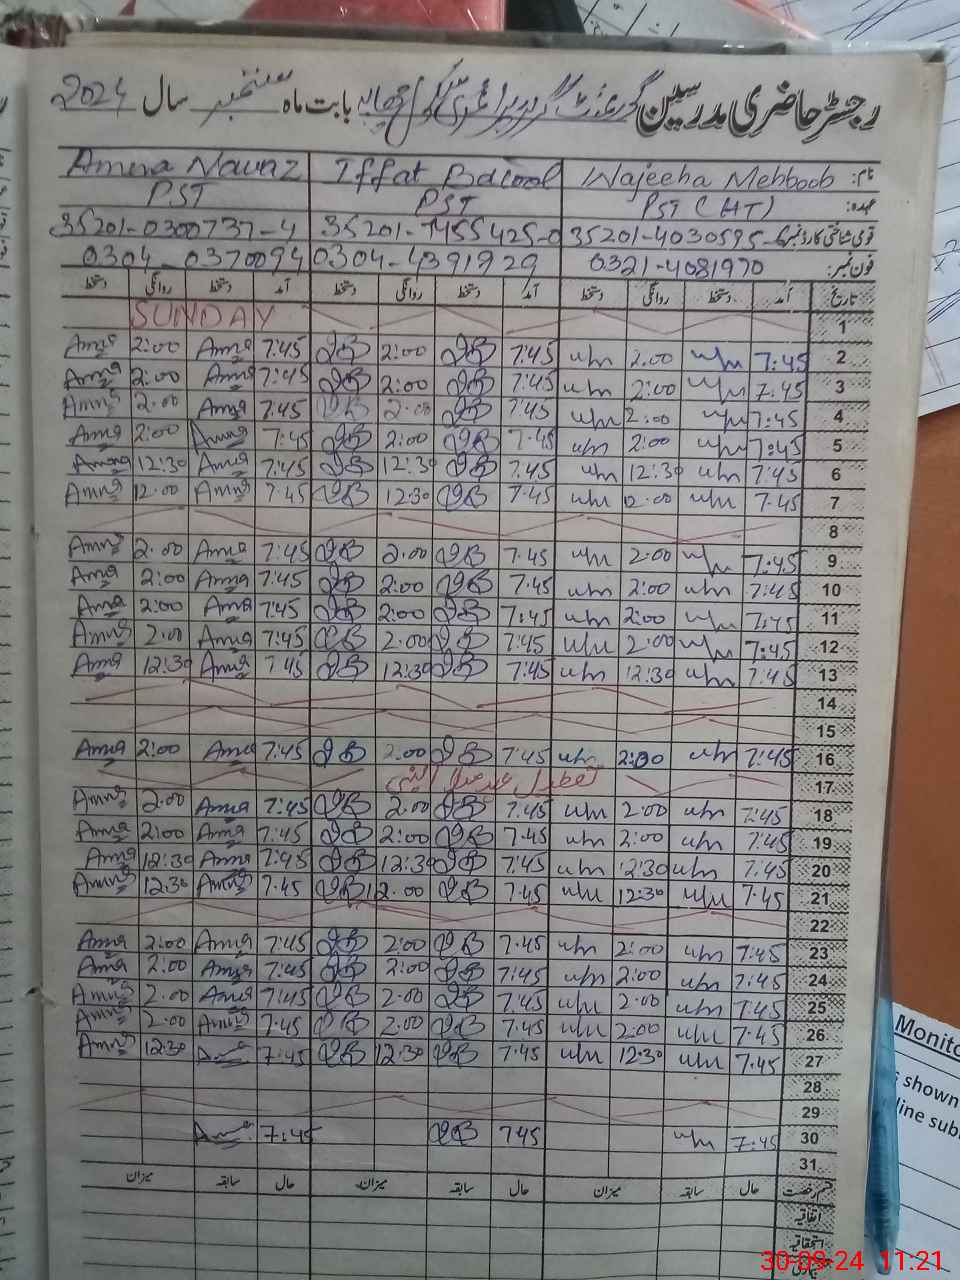 رجسٹر حاضری مدرسین گورنمنٹ گرلز پرائمری سکول بابت ماہ ستمبر سال 2024
نام: Wajeeha Mehboob Iffat Amna Nawaz
عہدہ: PST (HT) PST PST
قومی شناختی کارڈ نمبر 35201-4030595-6 35201-7455425-0 35201-0300737-4
فون نمبر: 0321-4081970 0304-4391929 0304-0370094
تاریخ آمد دستخط روانگی دستخط آمد دستخط روانگی دستخط آمد دستخط روانگی دستخط
1 SUNDAY
Amna 2:00 Amna 7:45 IB 2:00 IB 7:45 w/m 2:00 w/m 7:45 2
Amna 2:00 Amna 7:45 IB 2:00 IB 7:45 w/m 2:00 w/m 7:45 3
Amna 2:00 Amna 7:45 IB 2:00 IB 7:45 w/m 2:00 w/m 7:45 4
Amna 2:00 Amna 7:45 IB 2:00 IB 7:45 w/m 2:00 w/m 7:45 5
Amna 12:30 Amna 7:45 IB 12:30 IB 7:45 w/m 12:30 w/m 7:45 6
Amna 12:00 Amna 7:45 IB 12:30 IB 7:45 w/m 12:00 w/m 7:45 7
8
Amna 2:00 Amna 7:45 IB 2:00 IB 7:45 w/m 2:00 w/m 7:45 9
Amna 2:00 Amna 7:45 IB 2:00 IB 7:45 w/m 2:00 w/m 7:45 10
Amna 2:00 Amna 7:45 IB 2:00 IB 7:45 w/m 2:00 w/m 7:45 11
Amna 2:00 Amna 7:45 IB 2:00 IB 7:45 w/m 2:00 w/m 7:45 12
Amna 12:30 Amna 7:45 IB 12:30 IB 7:45 w/m 12:30 w/m 7:45 13
14
15
Amna 2:00 Amna 7:45 IB 2:00 IB 7:45 w/m 2:00 w/m 7:45 16
17 تعطیل عید میلاد النبی
Amna 2:00 Amna 7:45 IB 2:00 IB 7:45 w/m 2:00 w/m 7:45 18
Amna 2:00 Amna 7:45 IB 2:00 IB 7:45 w/m 2:00 w/m 7:45 19
Amna 12:30 Amna 7:45 IB 12:30 IB 7:45 w/m 12:30 w/m 7:45 20
Amna 12:30 Amna 7:45 IB 12:00 IB 7:45 w/m 12:30 w/m 7:45 21
22
Amna 2:00 Amna 7:45 IB 2:00 IB 7:45 w/m 2:00 w/m 7:45 23
Amna 2:00 Amna 7:45 IB 2:00 IB 7:45 w/m 2:00 w/m 7:45 24
Amna 2:00 Amna 7:45 IB 2:00 IB 7:45 w/m 2:00 w/m 7:45 25
Amna 2:00 Amna 7:45 IB 2:00 IB 7:45 w/m 2:00 w/m 7:45 26
Amna 12:30 Amna 7:45 IB 12:30 IB 7:45 w/m 12:30 w/m 7:45 27
28
29
Amna 7:45 IB 745 w/m 7:45 30
31
قسم رخصت حال سابقہ میزان حال سابقہ میزان حال سابقہ میزان
اتفاقیہ
استحقاقیہ
Monito
shown
line sub
30-09-24 11:21